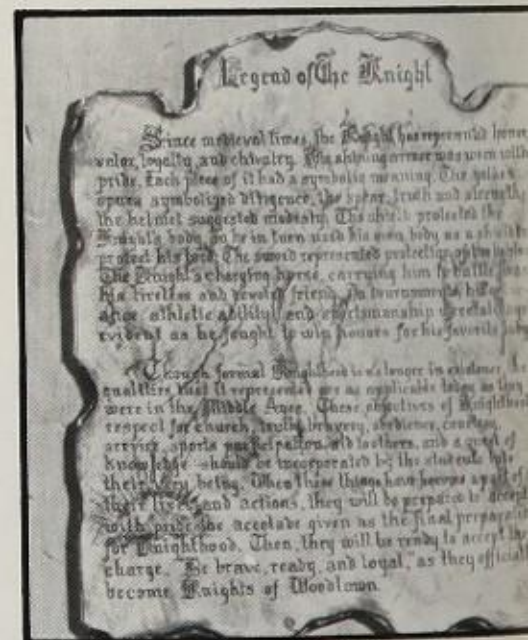 Legend of The Knight
Since medieval times, the Knight has represented honor,
valor, loyalty, and chivalry. His shining armor was worn with
pride. Each piece of it had a symbolic meaning. The golden
spurs symbolized diligence, the spear, truth and strength,
the helmet suggested modesty. The shield protected the
Knight's body, so he in turn used his own body as a shield to
protect his lord. The sword represented protection of the
The Knight's charging horse, carrying him to battle
his tireless and devoted friend. In tournaments, his
athletic ability, and sportsmanship
evident as he fought to win honors for his favorite lady
Though formal Knighthood is no longer in existence, the
qualities that it represented are as applicable today as they
were in the Middle Ages. These objectives of Knighthood
respect for church, truth, bravery, obedience, courtesy,
service, sports participation, aid to others, and a quest of
knowledge should be incorporated by the students into
their very being. When these things have become a part of
their lives and actions, they will be prepared to accept
with pride the accolade given as the final preparation
for Knighthood. Then, they will be ready to accept the
charge, "Be brave, ready, and loyal," as they
become Knights of Woodlawn.